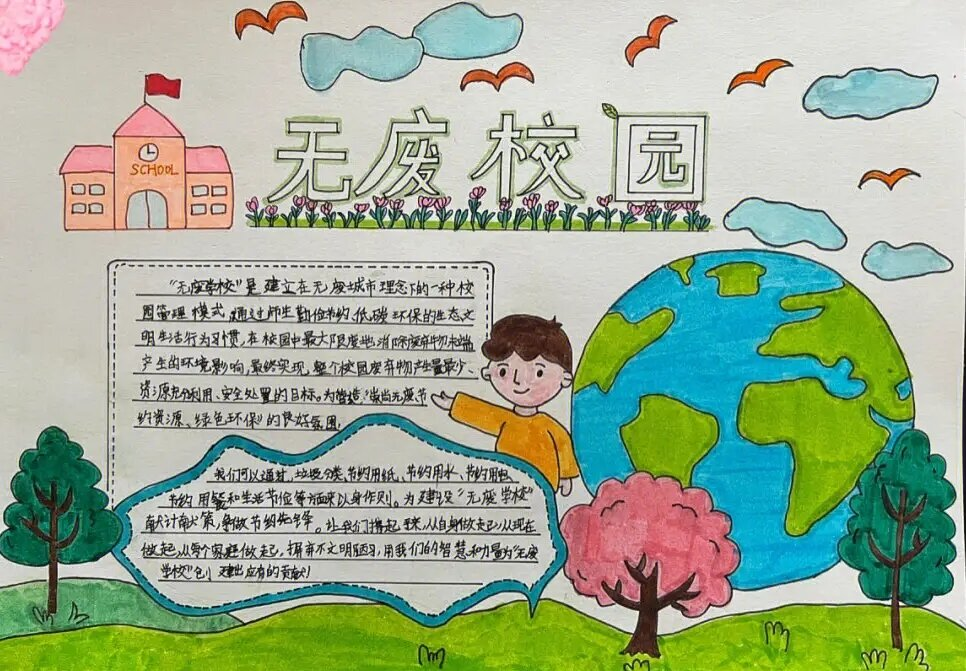 SCHOOL
无废校园
“无废学校”是建立在无废城市理念下的一种校
园管理模式,通过师生勤俭节约、低碳环保的生态文
明生活行为习惯,在校园中最大限度地消除废弃物末端
产生的环境影响,最终实现整个校园废弃物产生量最少、
资源充分利用、安全处置的目标。为营造“崇尚无废、节
约资源、绿色环保”的良好氛围,
我们可以通过,垃圾分类、节约用纸、节约用水、节约用电
节约用餐和生活节俭等方面来以身作则。为建设“无废学校”
献计献策,争做节约先锋。让我们携起手来,从自身做起,从现在
做起,从每个家庭做起,摒弃不文明陋习,用我们的智慧和力量为“无废
学校”创建出应有的贡献!